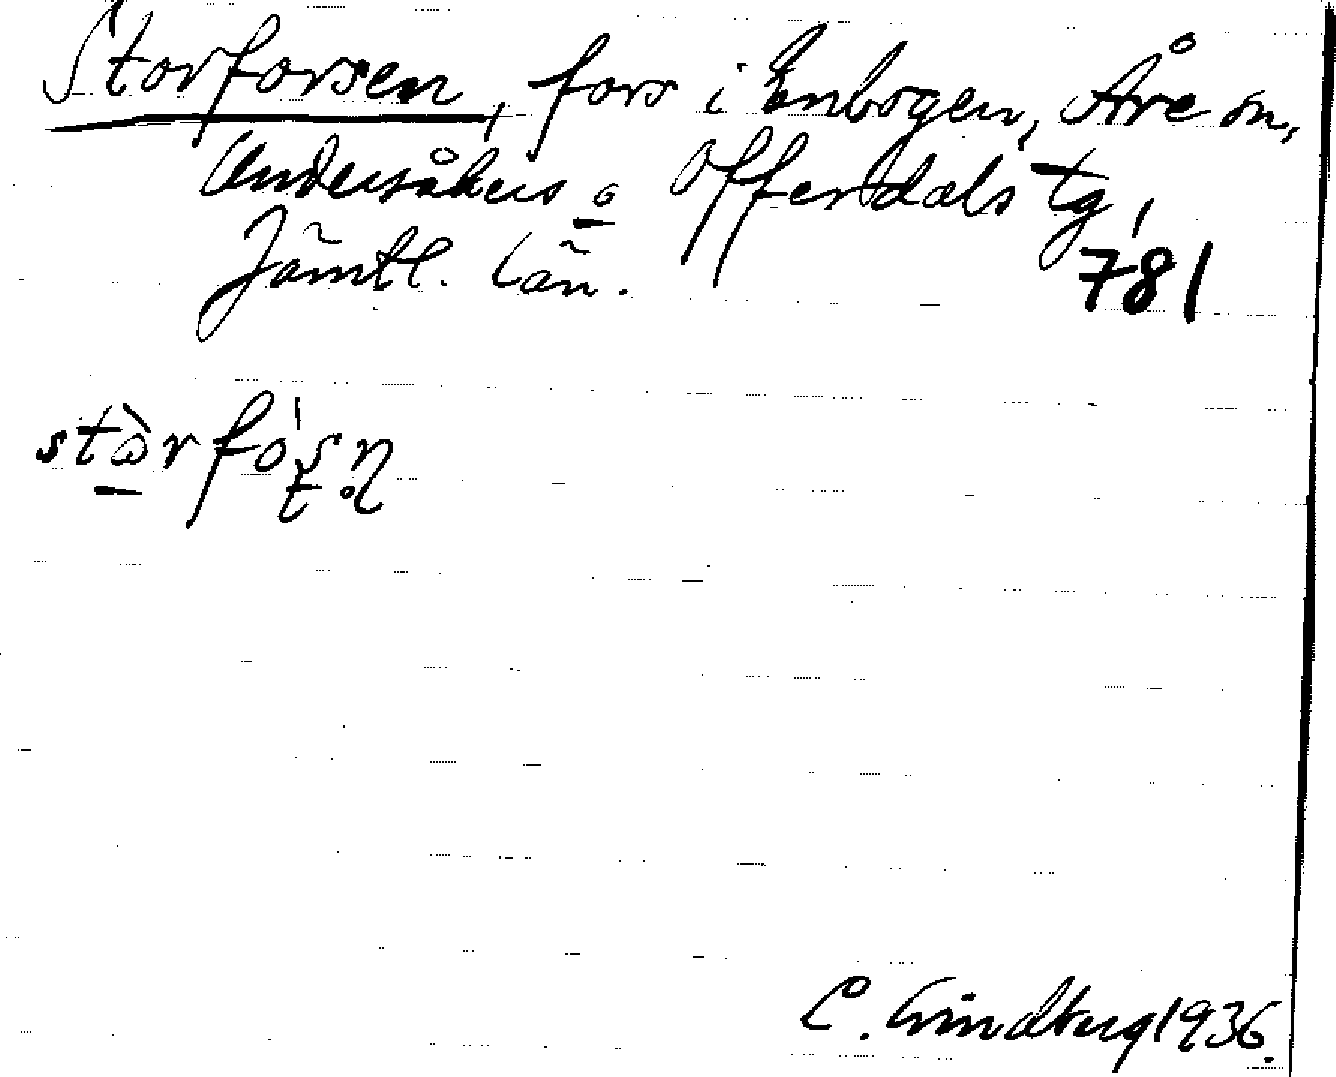 Storforsen, fors i Enbogen, Åre sn,
Undersåkers o Offerdals tg,
Jämtl. län. 781
C. Lindberg 1936.